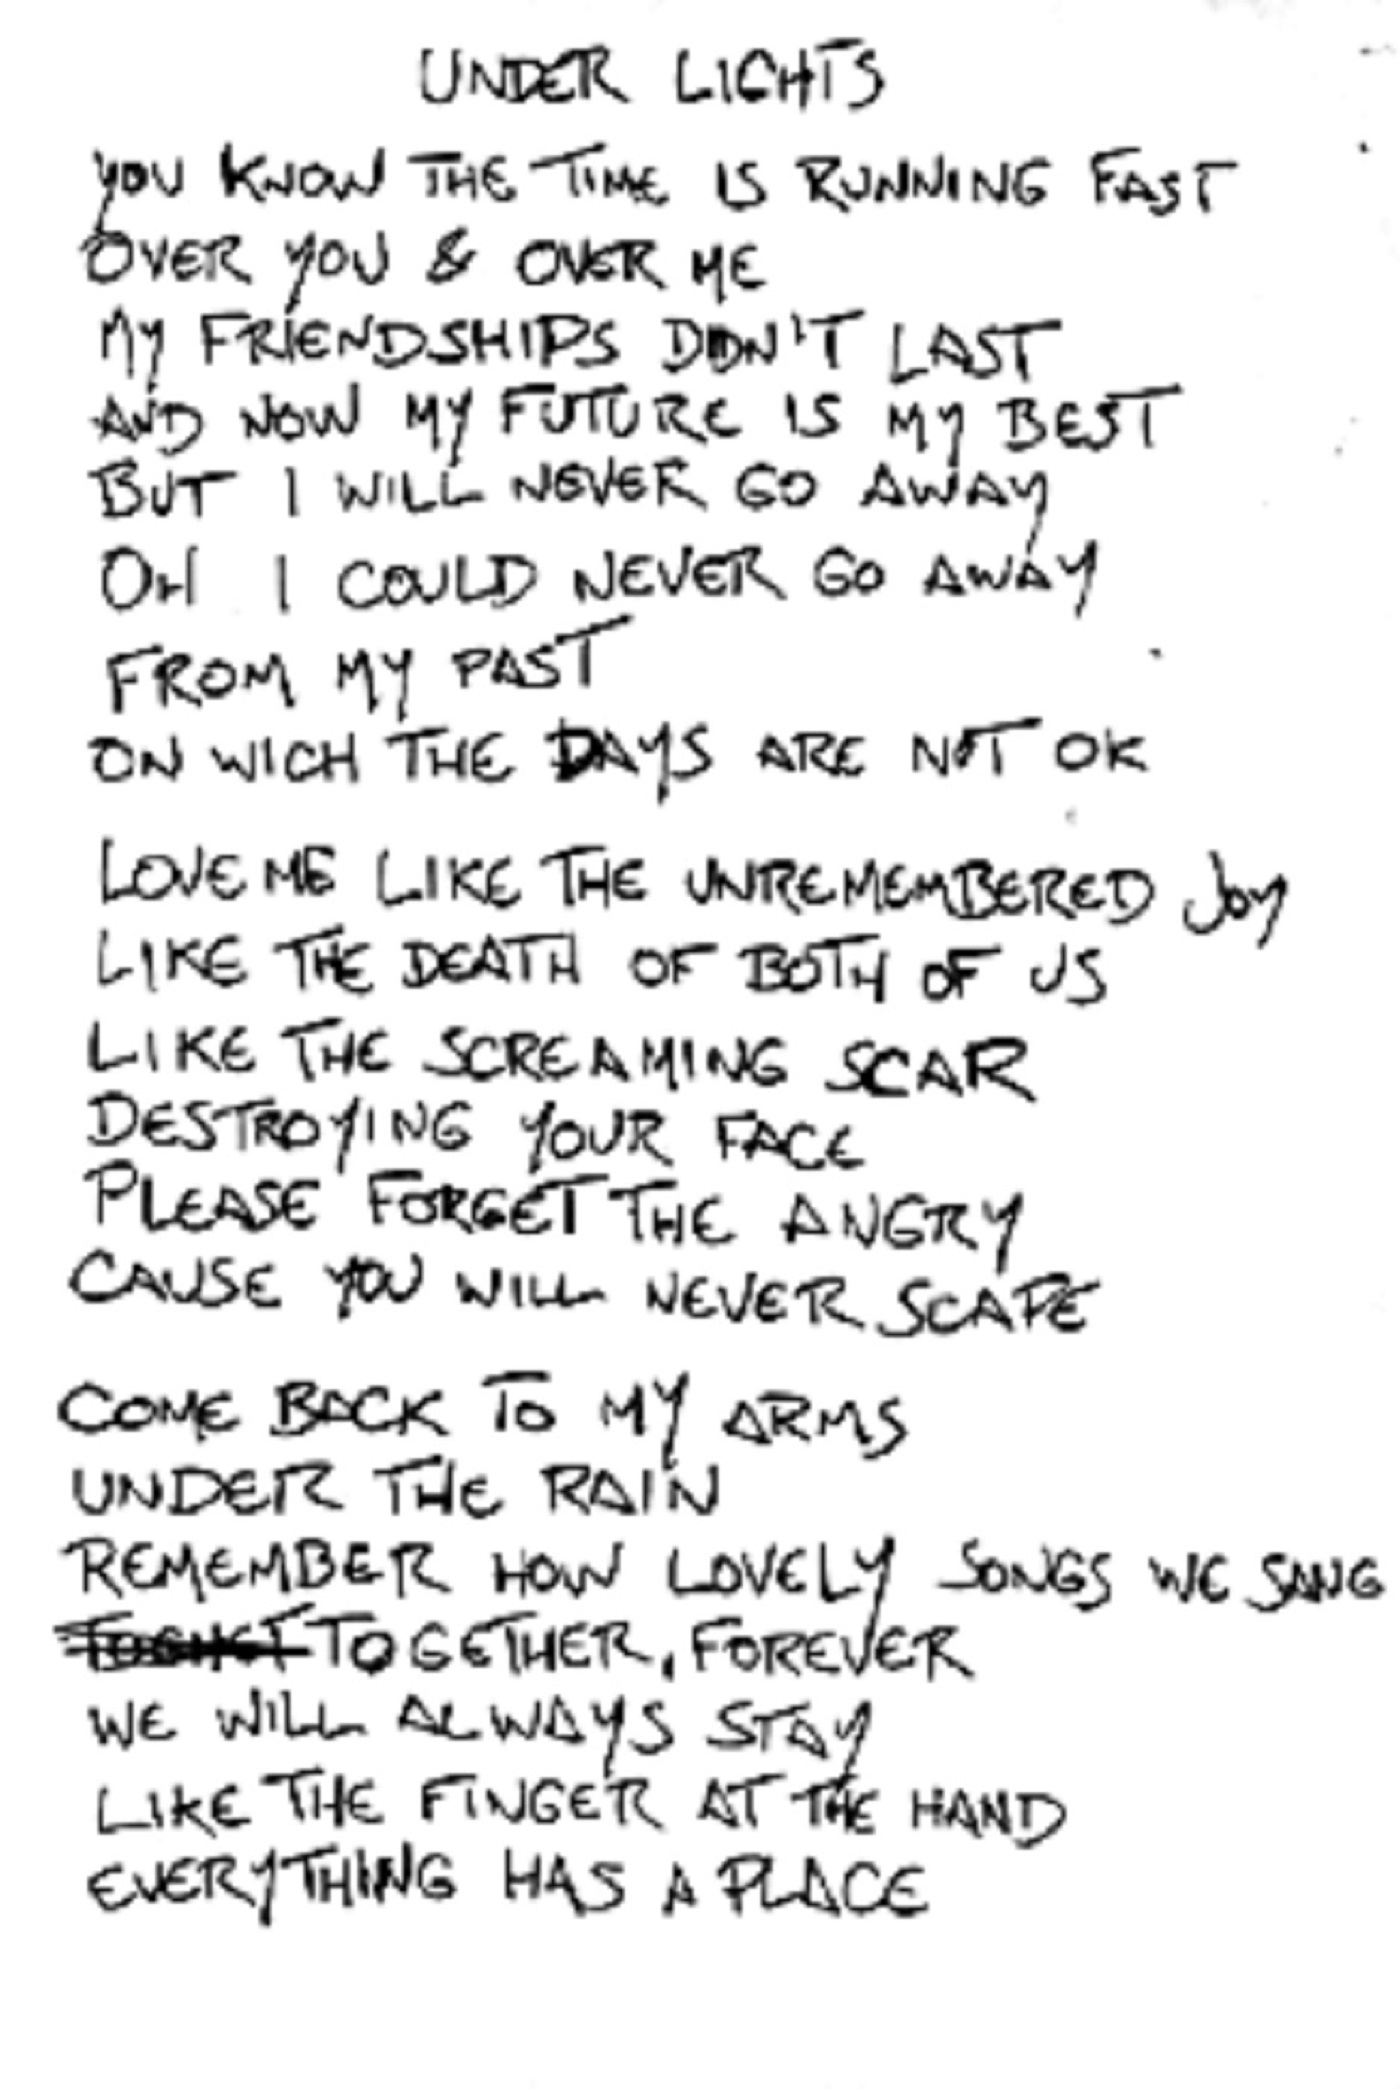 UNDER LIGHTS
YOU KNOW THE TIME IS RUNNING FAST
OVER YOU & OVER ME
MY FRIENDSHIPS DIDN'T LAST
AND NOW MY FUTURE IS MY BEST
BUT I WILL NEVER GO AWAY
OH I COULD NEVER GO AWAY
FROM MY PAST
ON WICH THE DAYS ARE NOT OK
LOVE ME LIKE THE UNREMEMBERED JOY
LIKE THE DEATH OF BOTH OF US
LIKE THE SCREAMING SCAR
DESTROYING YOUR FACE
PLEASE FORGET THE ANGRY
CAUSE YOU WILL NEVER SCAPE
COME BACK TO MY ARMS
UNDER THE RAIN
REMEMBER HOW LOVELY SONGS WE SANG
TOGETHER, FOREVER
WE WILL ALWAYS STAY
LIKE THE FINGER AT THE HAND
EVERYTHING HAS A PLACE